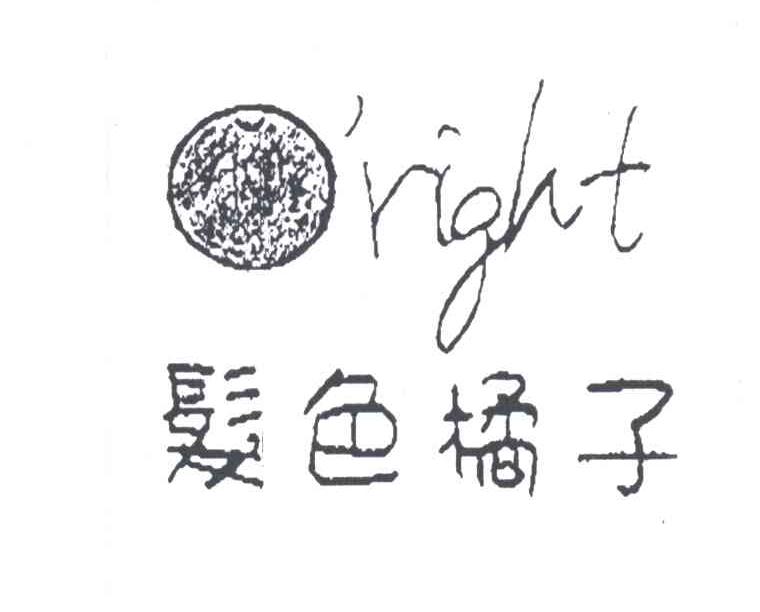 O'right
髮色橘子